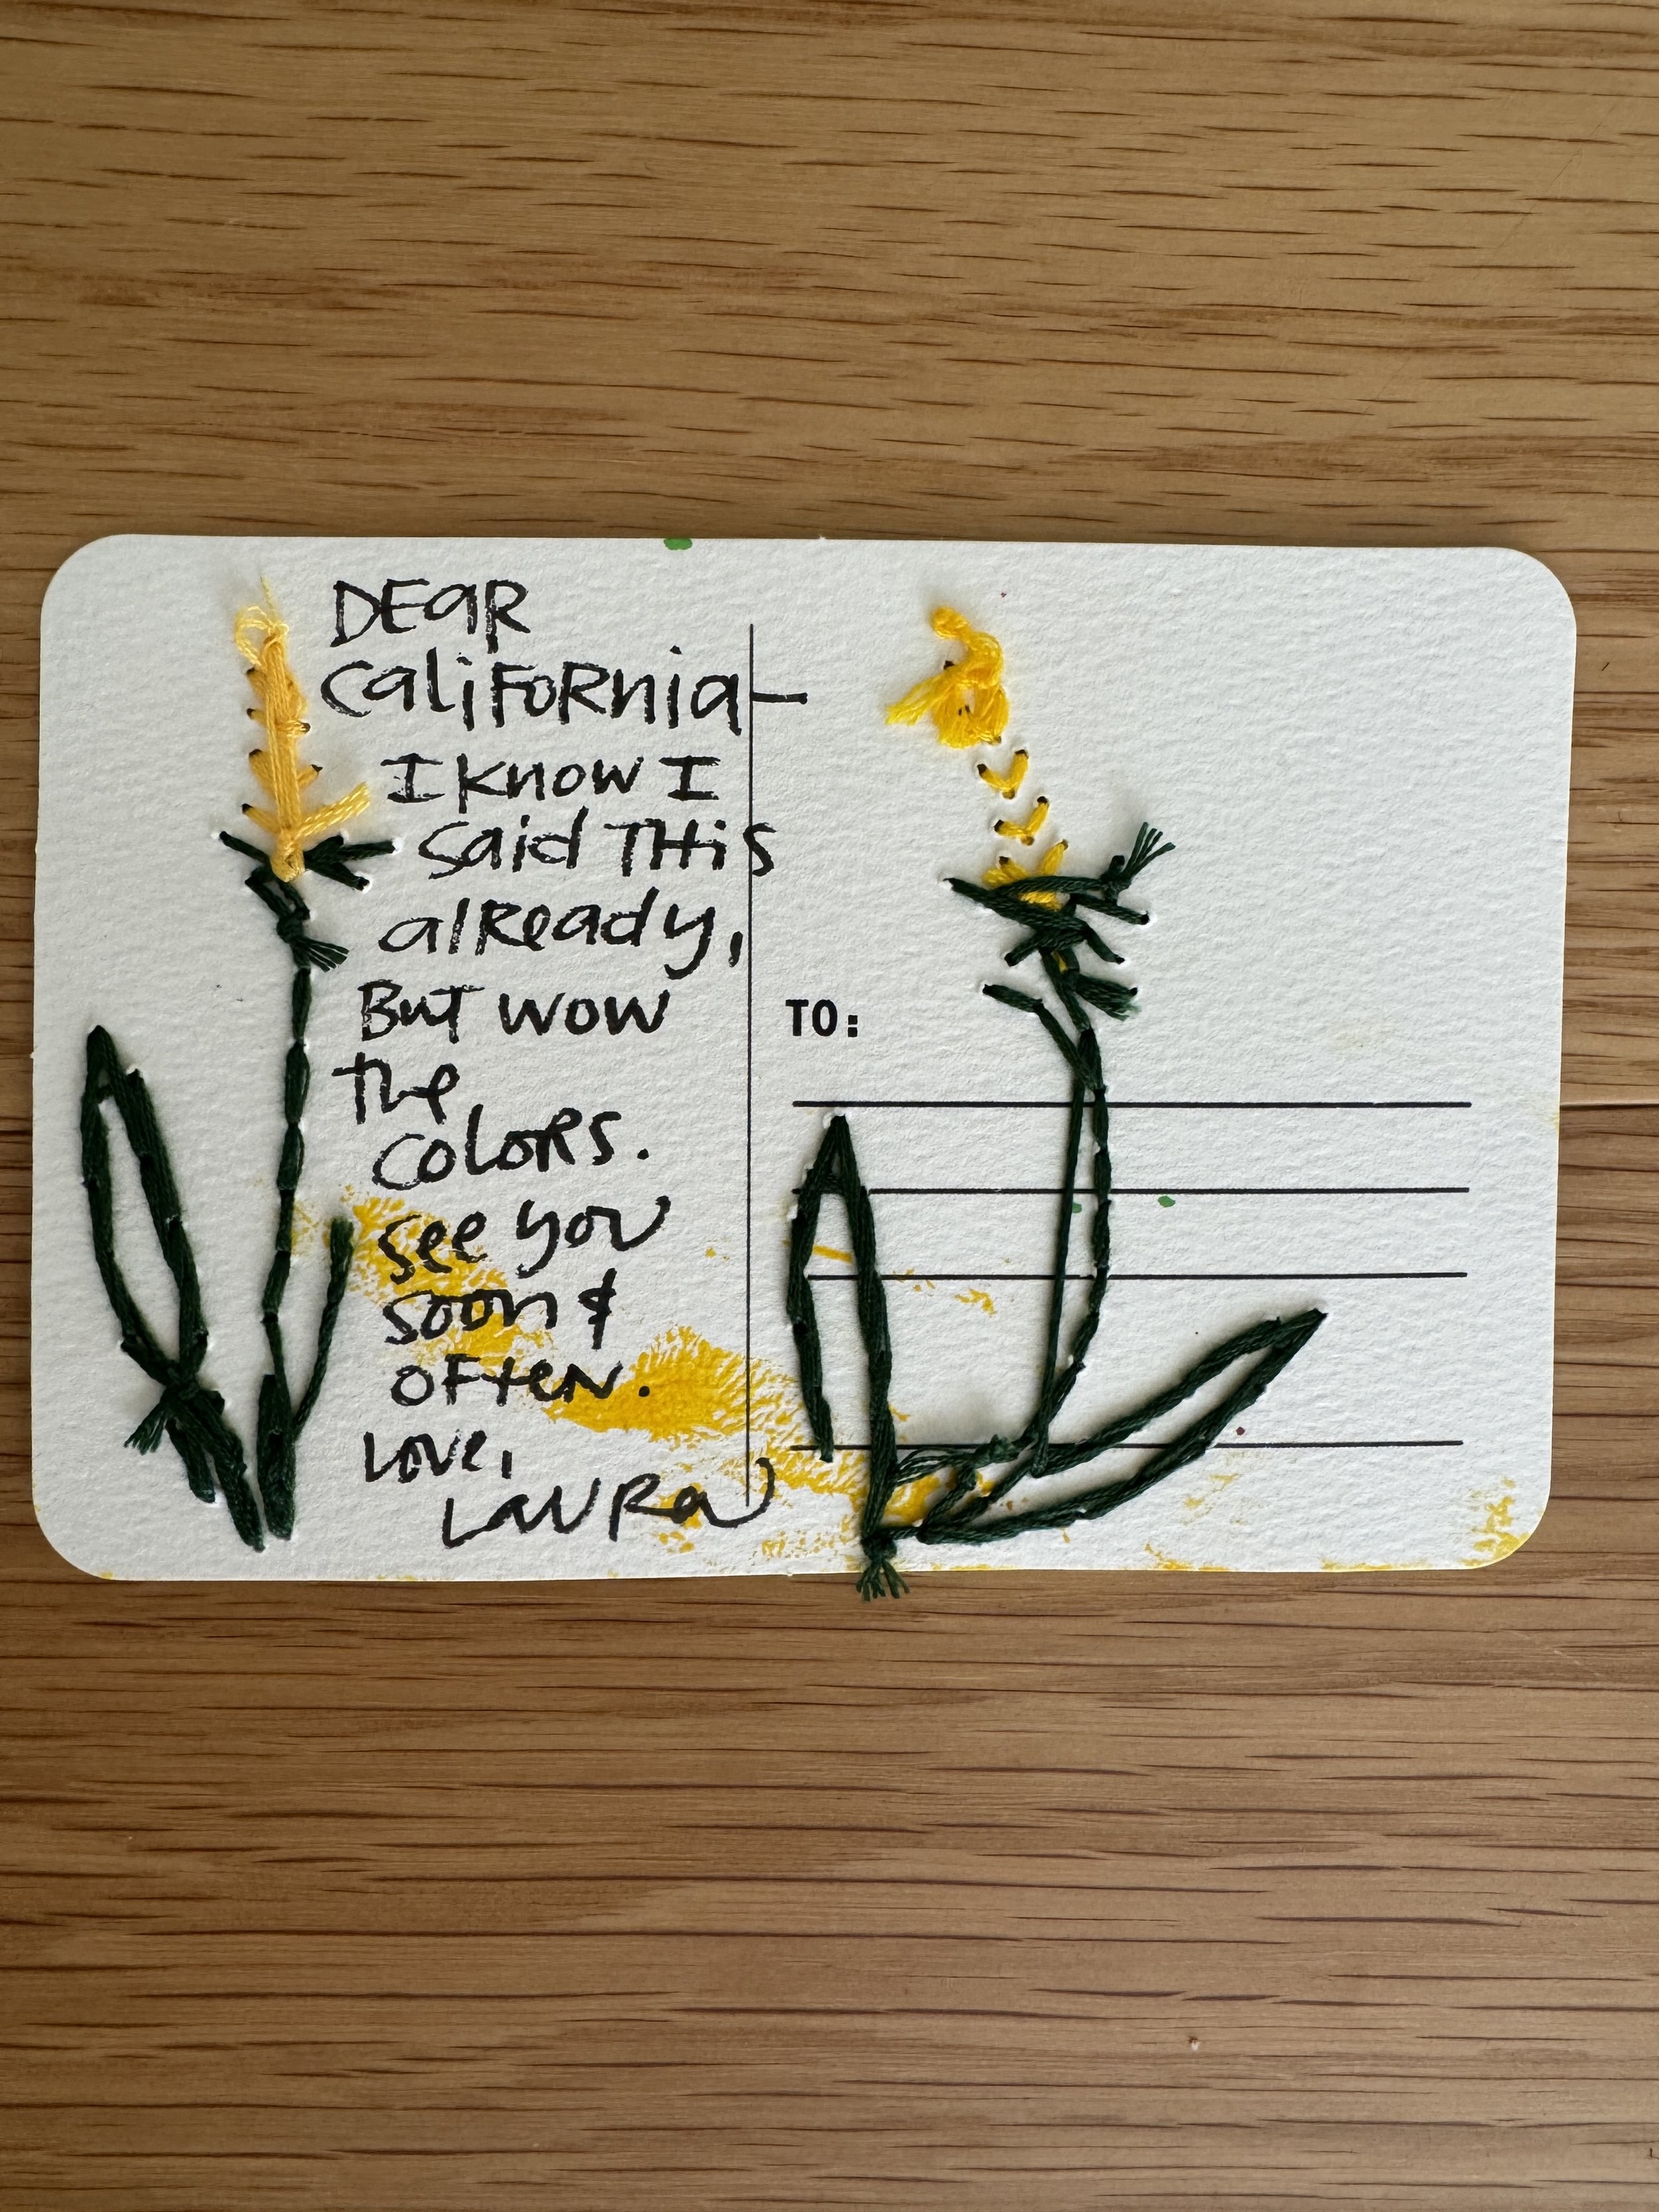 DEAR
CALIFORNIA—
I KNOW I
SAID THIS
ALREADY,
BUT WOW
THE
COLORS.
SEE YOU
SOON &
OFTEN.
LOVE,
LAURA
TO: